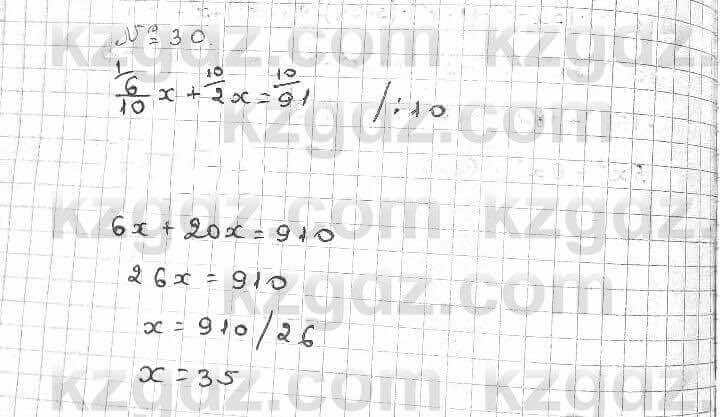 № 30.
1/ 10/ 10/
6/10 x + 2x = 91 /:10
6x + 20x = 910
26x = 910
x = 910/26
x = 35
kzgdz.com kzgdz.com
kzgdz.com
kzgdz.com kzgdz.com
kzgdz.com
kzgdz.com kzgdz.com